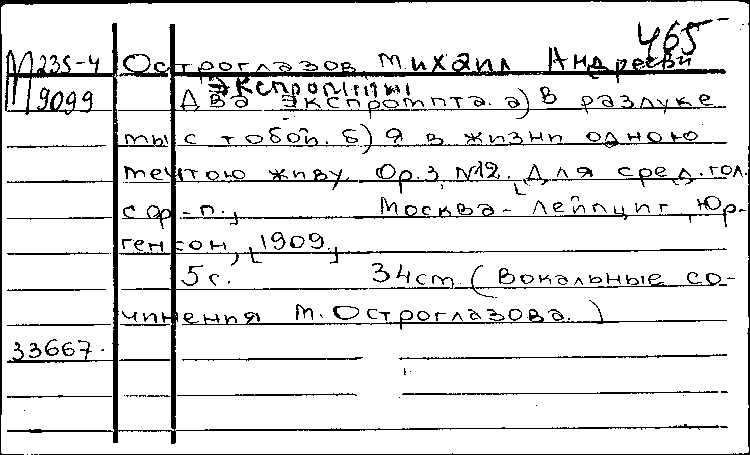 465
М 235-4 Остроглазов, Михаил Андрееви
Экспромпты
9099 Два экспромпта. а) В разлуке
мы с тобой. б) Я в жизни одною
мечтою живу. Ор. 3, №12. [Для сред. гол.
с ф-п.], Москва - Лейпциг, Юр-
генсон, [1909]
5 с. 34 см (Вокальные со-
чинения М. Остроглазова.)
33667.